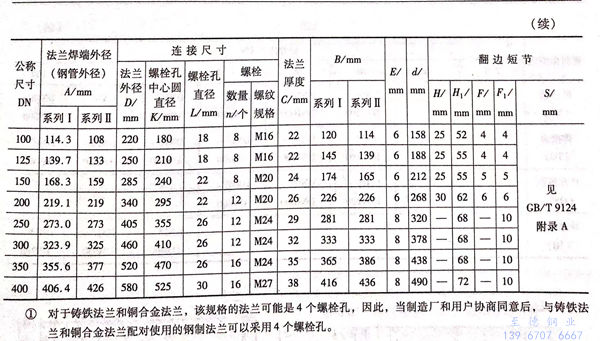 （续）
公称尺寸 DN 法兰焊端外径（钢管外径）A/mm 连接尺寸 法兰厚度 C/mm B/mm E/mm d/mm 翻边短节
法兰外径 D/mm 螺栓孔中心圆直径 K/mm 螺栓孔直径 L/mm 螺栓 H/mm H₁/mm F/mm F₁/mm S/mm
系列Ⅰ 系列Ⅱ 数量 n/个 螺纹规格 系列Ⅰ 系列Ⅱ
100 114.3 108 220 180 18 8 M16 22 120 114 6 158 25 52 4 4
125 139.7 133 250 210 18 8 M16 22 145 139 6 188 25 55 4 4
150 168.3 159 285 240 22 8 M20 24 174 165 6 212 25 55 5 5
200 219.1 219 340 295 22 12 M20 26 226 226 6 268 30 62 6 6
250 273.0 273 405 355 26 12 M24 29 281 281 8 320 — 68 — 10
300 323.9 325 460 410 26 12 M24 32 333 333 8 378 — 68 — 10
350 355.6 377 520 470 26 16 M24 35 365 386 8 438 — 68 — 10
400 406.4 426 580 525 30 16 M27 38 416 436 8 490 — 72 — 10
见
GB/T 9124
附录 A
① 对于铸铁法兰和铜合金法兰，该规格的法兰可能是4个螺栓孔，因此，当制造厂和用户协商同意后，与铸铁法
兰和铜合金法兰配对使用的钢制法兰可以采用4个螺栓孔。
至德钢业
139 6707 6667